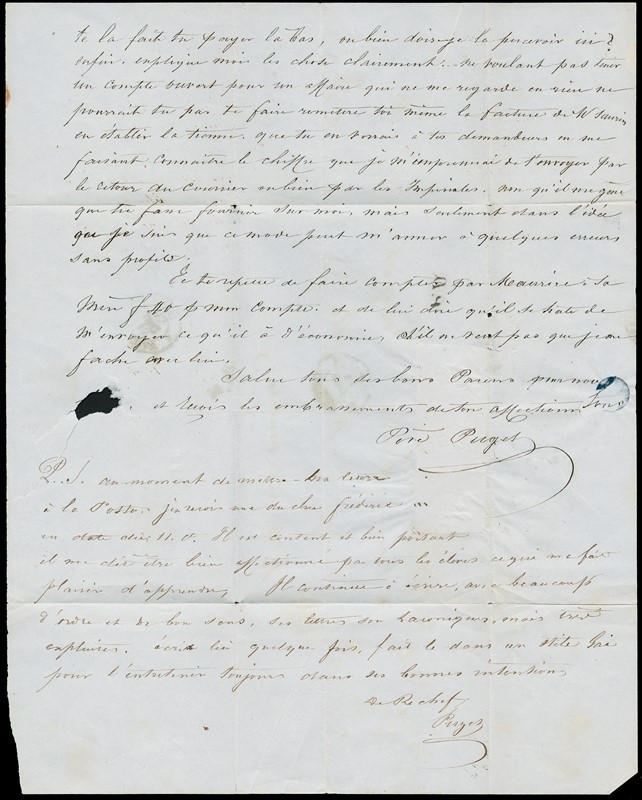 te la fait tu payer la bas, ou bien dois-je la percevoir ici?
enfin, explique mois les chose clairement. ne voulant pas tenir
un compte ouvert pour un affaire qui ne me regarde en rien ne
pourrait tu pas te faire remettre toi même la facture de W
en établir la tienne, que tu en verrais à tes demandeurs en me
faisant connaître le chiffre que je m'empresserai de t'envoyer par
le retour du courrier ou bien par les Impériales. non qu'il me gêne
que tu fasse fournir sur moi, mais seulement dans l'idée
que je suis que ce mode peut m'amener à quelques erreurs
sans profits.
Je te répète de faire compter par Maurice à sa
Mère f 40 p mon Compte. et de lui dire qu'il se hate de
m'envoyer ce qu'il à d'économie, s'il ne veut pas que je me
fache avec lui.
Salue tous ses bons Parens pour nous
et reçois les embrassements de ton affectionné
Père Puget
P. S. au moment de mettre ma lettre
à la Poste, je reçois une du cher fréderic
en date du 11. ct. Il est content et bien portant
il me dit être bien affectionné par tous les élèves ce qui me fait
plaisir d'apprendre, Il continue à écrire, avec beaucoup
d'ordre et de bon sens, ses lettres son Laconiques, mais très
explicites. écris lui quelque fois, fait le dans un stile Gai
pour l'entretenir toujours dans ses bonnes intentions,
de Rechef
Puget